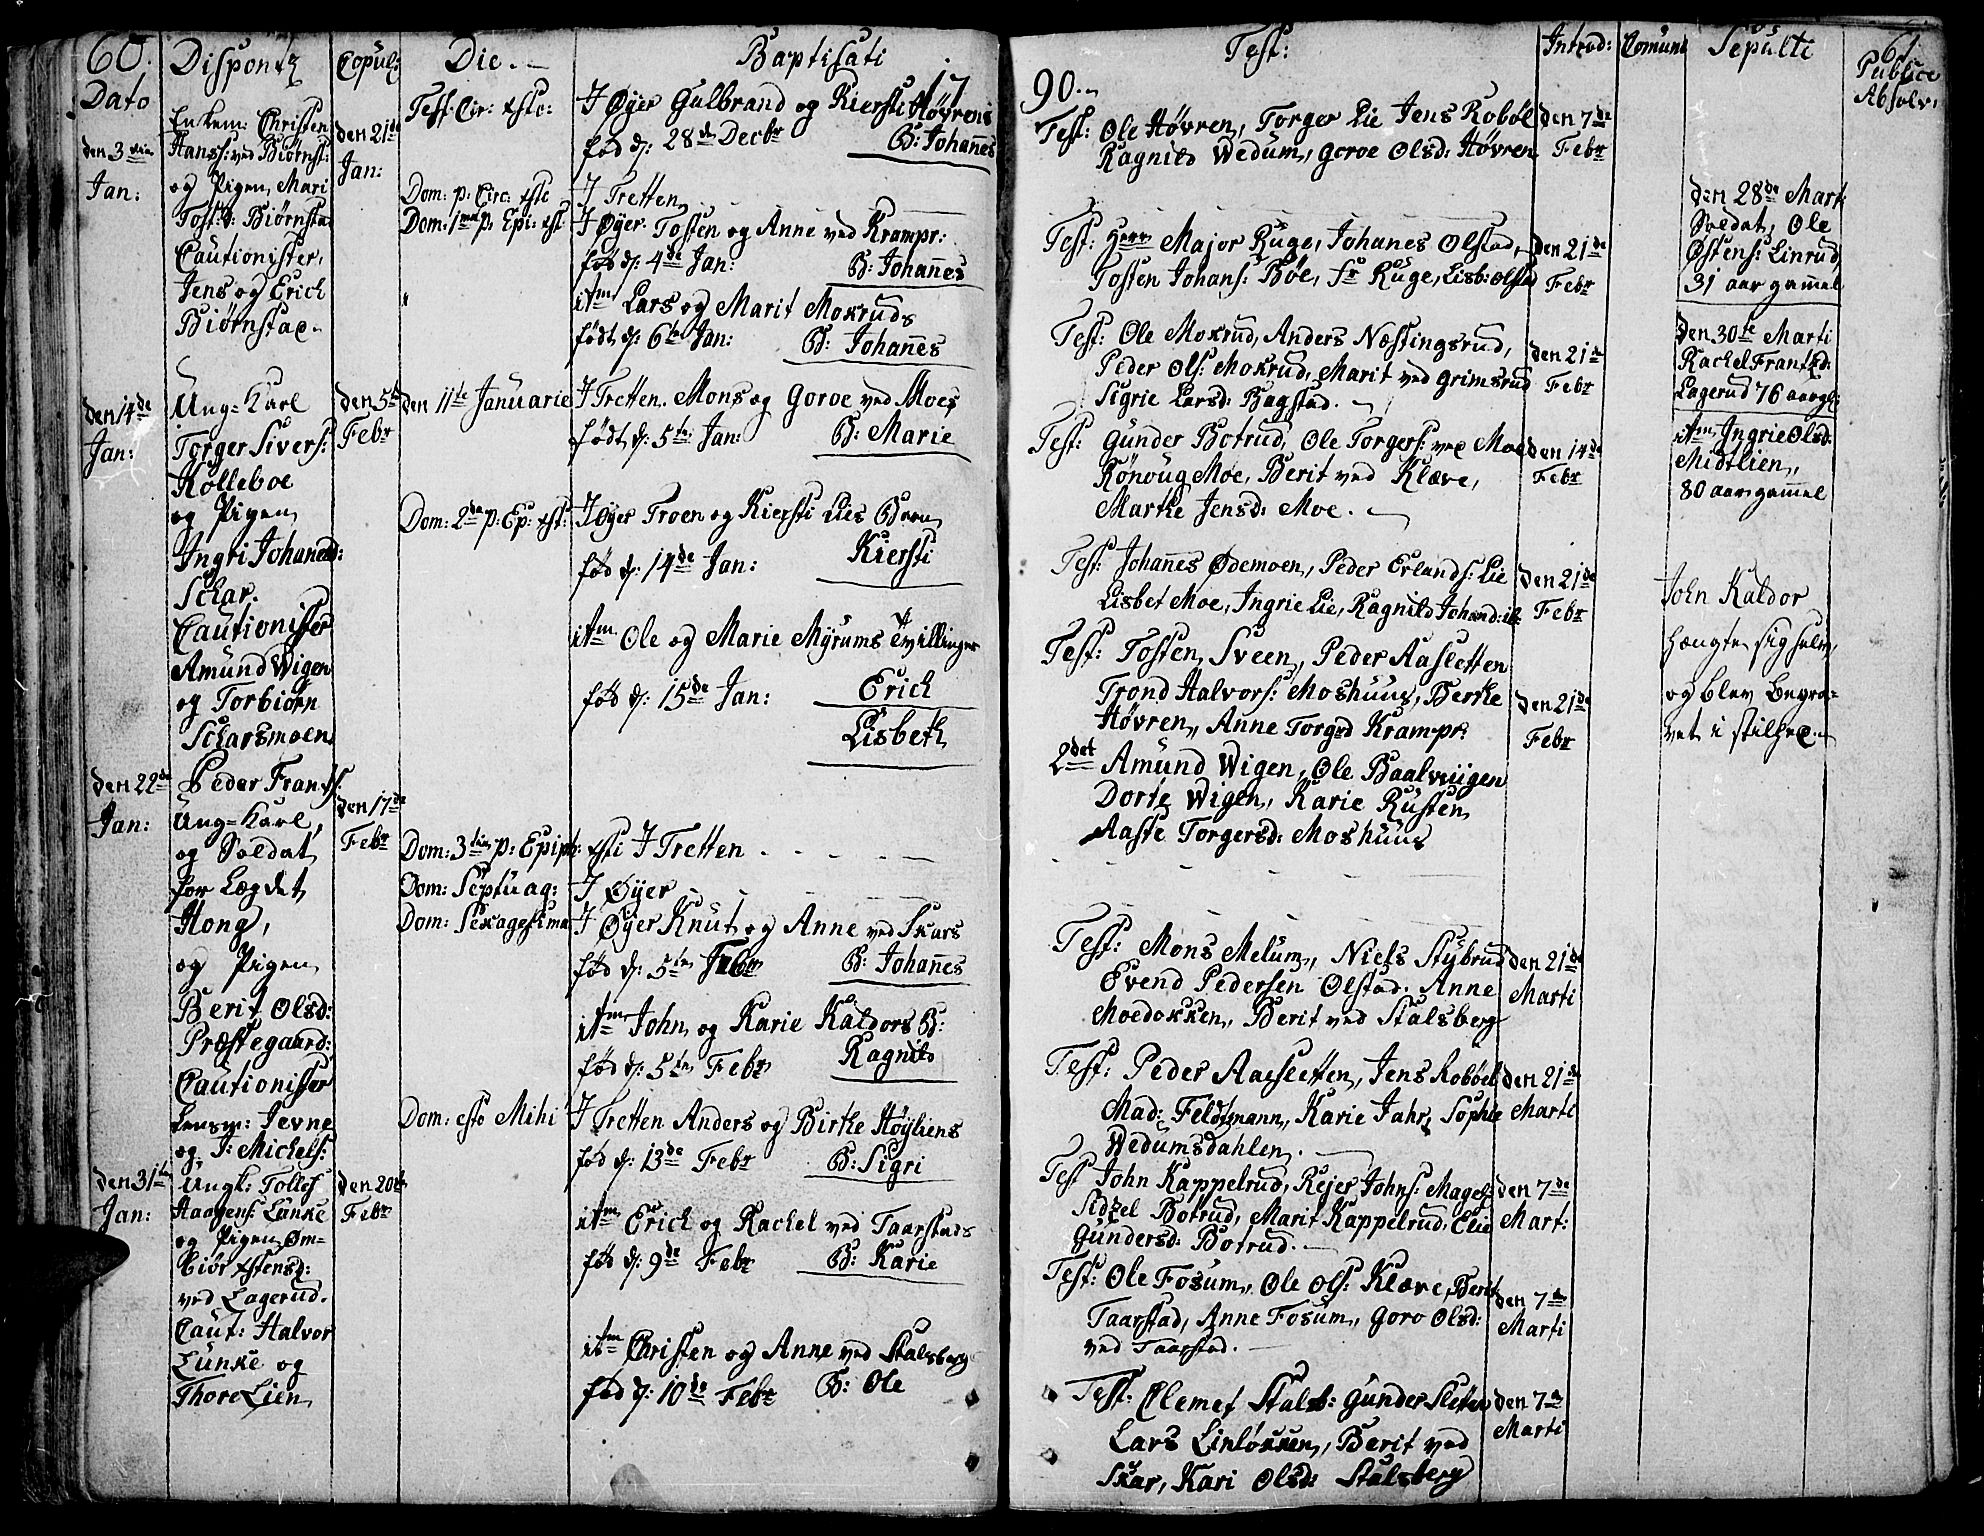 60. Disponsz Copul: Die. Baptisati 17
Dato
den 3
Jan:
Enkem: Christen
Hanss: ved Biørnst:
og Pigen Mari
Tost: d: Biørnsta
Cautionister,
Jens og Erich
Biørnstad
den 21de
Jan:
den 14de
Jan:
Ung=Karl
Torger Sivers:
Kolleboe
og Pigen
Ingri Johanesd:
Schar.
Cautionister
Amund Wigen
og Torbiørn
Scharsmoen
den 5te
Febr
den 22de
Jan:
Peder Frants:
Ung=Karl,
og Soldat
for Lægdet
Hong,
og Pigen
Berit Olsd:
Præstegaard:
Cautionister
Lensm: Jevne
og J: Michels:
den 17de
Febr
den 31te
Jan:
Ungk: Tollef
Haagens: Lunke
og Pigen Øm=
biør Østensd:
ved Lagerud.
Caut: Halvor
Lunke og
Thore Lien
den 20de
Febr
Fest: Cir: xsto:
I Øyer Gulbrand og Kiersti Høvrens
fød d: 28de Decbr B: Johanes
Dom: p: Circ: xste I Tretten
Dom: 1ma p: Epi: xst I Øyer Tosten og Anne ved Krampr:
fød d: 4de Jan: B: Johannes
itm Lars og Marit Moxruds
født d: 6te Jan: B: Johannes
den 11te Januarie I Tretten. Mons og Goroe ved Moes
født d: 5te Jan: B: Marie
Dom: 2da p: Ep: xst: I Øyer Troen og Kiersti Lies Barn
fød d: 14de Jan: Kiersti
itm Ole og Marie Myrums Tvillinger
fød d: 15de Jan: Erich
Lisbeth
Dom: 3tia p: Epiph: xsti I Tretten
Dom: Septuag: I Øyer
Dom: Sexagesima I Øyer Knut og Anne ved Skars
fød d: 5te Febr B: Johannes
itm John og Karie Kaldors B:
fød d: 5te Febr Ragnild
Dom: esto Mihi I Tretten Anders og Birthe Høyliens
fød d: 13de Febr B: Sigri
itm Erich og Rachel ved Taarstads
fød d: 9de Febr B: Karie
itm Christen og Anne ved Stalsberg
fød d: 10de Febr B: Ole
90. Test: Introd: Comuni Sepulti 61.
Publice
Absolv:
Test: Ole Høvren, Torger Lie Jens Robøl
Ragnild Wedum, Goroe Olsd: Høvren
den 7de
Febr
Test: Herr Major Ruge, Johanes Olstad,
Tosten Johans: Bøe, fr Ruge, Lisb: Olstad
den 21de
Febr
Test: Ole Moxrud, Anders Næstingsrud,
Peder Ols: Moxrud, Marit ved Grimsrud
Sigrie Larsd: Bagstad.
den 21de
Febr
Test: Gunder Botrud, Ole Torgers: ved Moe
Rønoug Moe, Berit ved Klæve,
Marthe Jensd: Moe.
den 14de
Febr
Test: Johannes Ødemoen, Peder Erlands: Lie
Lisbet Moe, Ingrie Lie, Ragnild Johand: ib:
den 21de
Febr
Test: Tosten Sveen, Peder Aasletten
Trond Halvors: Moshuus, Berthe
Høvren, Anne Torgrd Krampr:
2det Amund Wigen, Ole Baalvuigen
Dorte Wigen, Karie Rusten
Aaste Torgersd: Moshuus
den 21de
Febr
Test: Mons Melum, Niels Stybrud
Evend Pedersen Olstad. Anne
Moedoxken, Berit ved Stalsberg
den 21de
Marti
Test: Peder Aasletten, Jens Robøel
Mad: Feldtmann, Karie Jahr, Sophie
Wedumsdahlen.
den 21de
Marti
Test John Kappelrud, Rejer Johns: Magel:
Sidzel Botrud, Marit Kappelrud, Elie
Gundersd: Botrud.
den 7de
Mart:
Test: Ole Fosum, Ole Ols: Klæve, Berit
Taarstad, Anne Fosum, Goro Olsd:
ved Taarstad.
den 7de
Marti
Test: Clemet Stalsb: Gunder Sletten
Lars Linløkken, Berit ved
Skar, Kari Olsd: Stalsberg
den 7de
Marti
den 28de Mart:
Soldat, Ole
Østens: Linrud
31 aar gammel
den 30te Marti
Rachel Frantzd:
Lagerud 76 aar gl:
itm Ingrie Olsd:
Midtlien,
80 aar gammel
John Kaldor
hængte sig selv,
og blev Begra=
vet i stilhed.